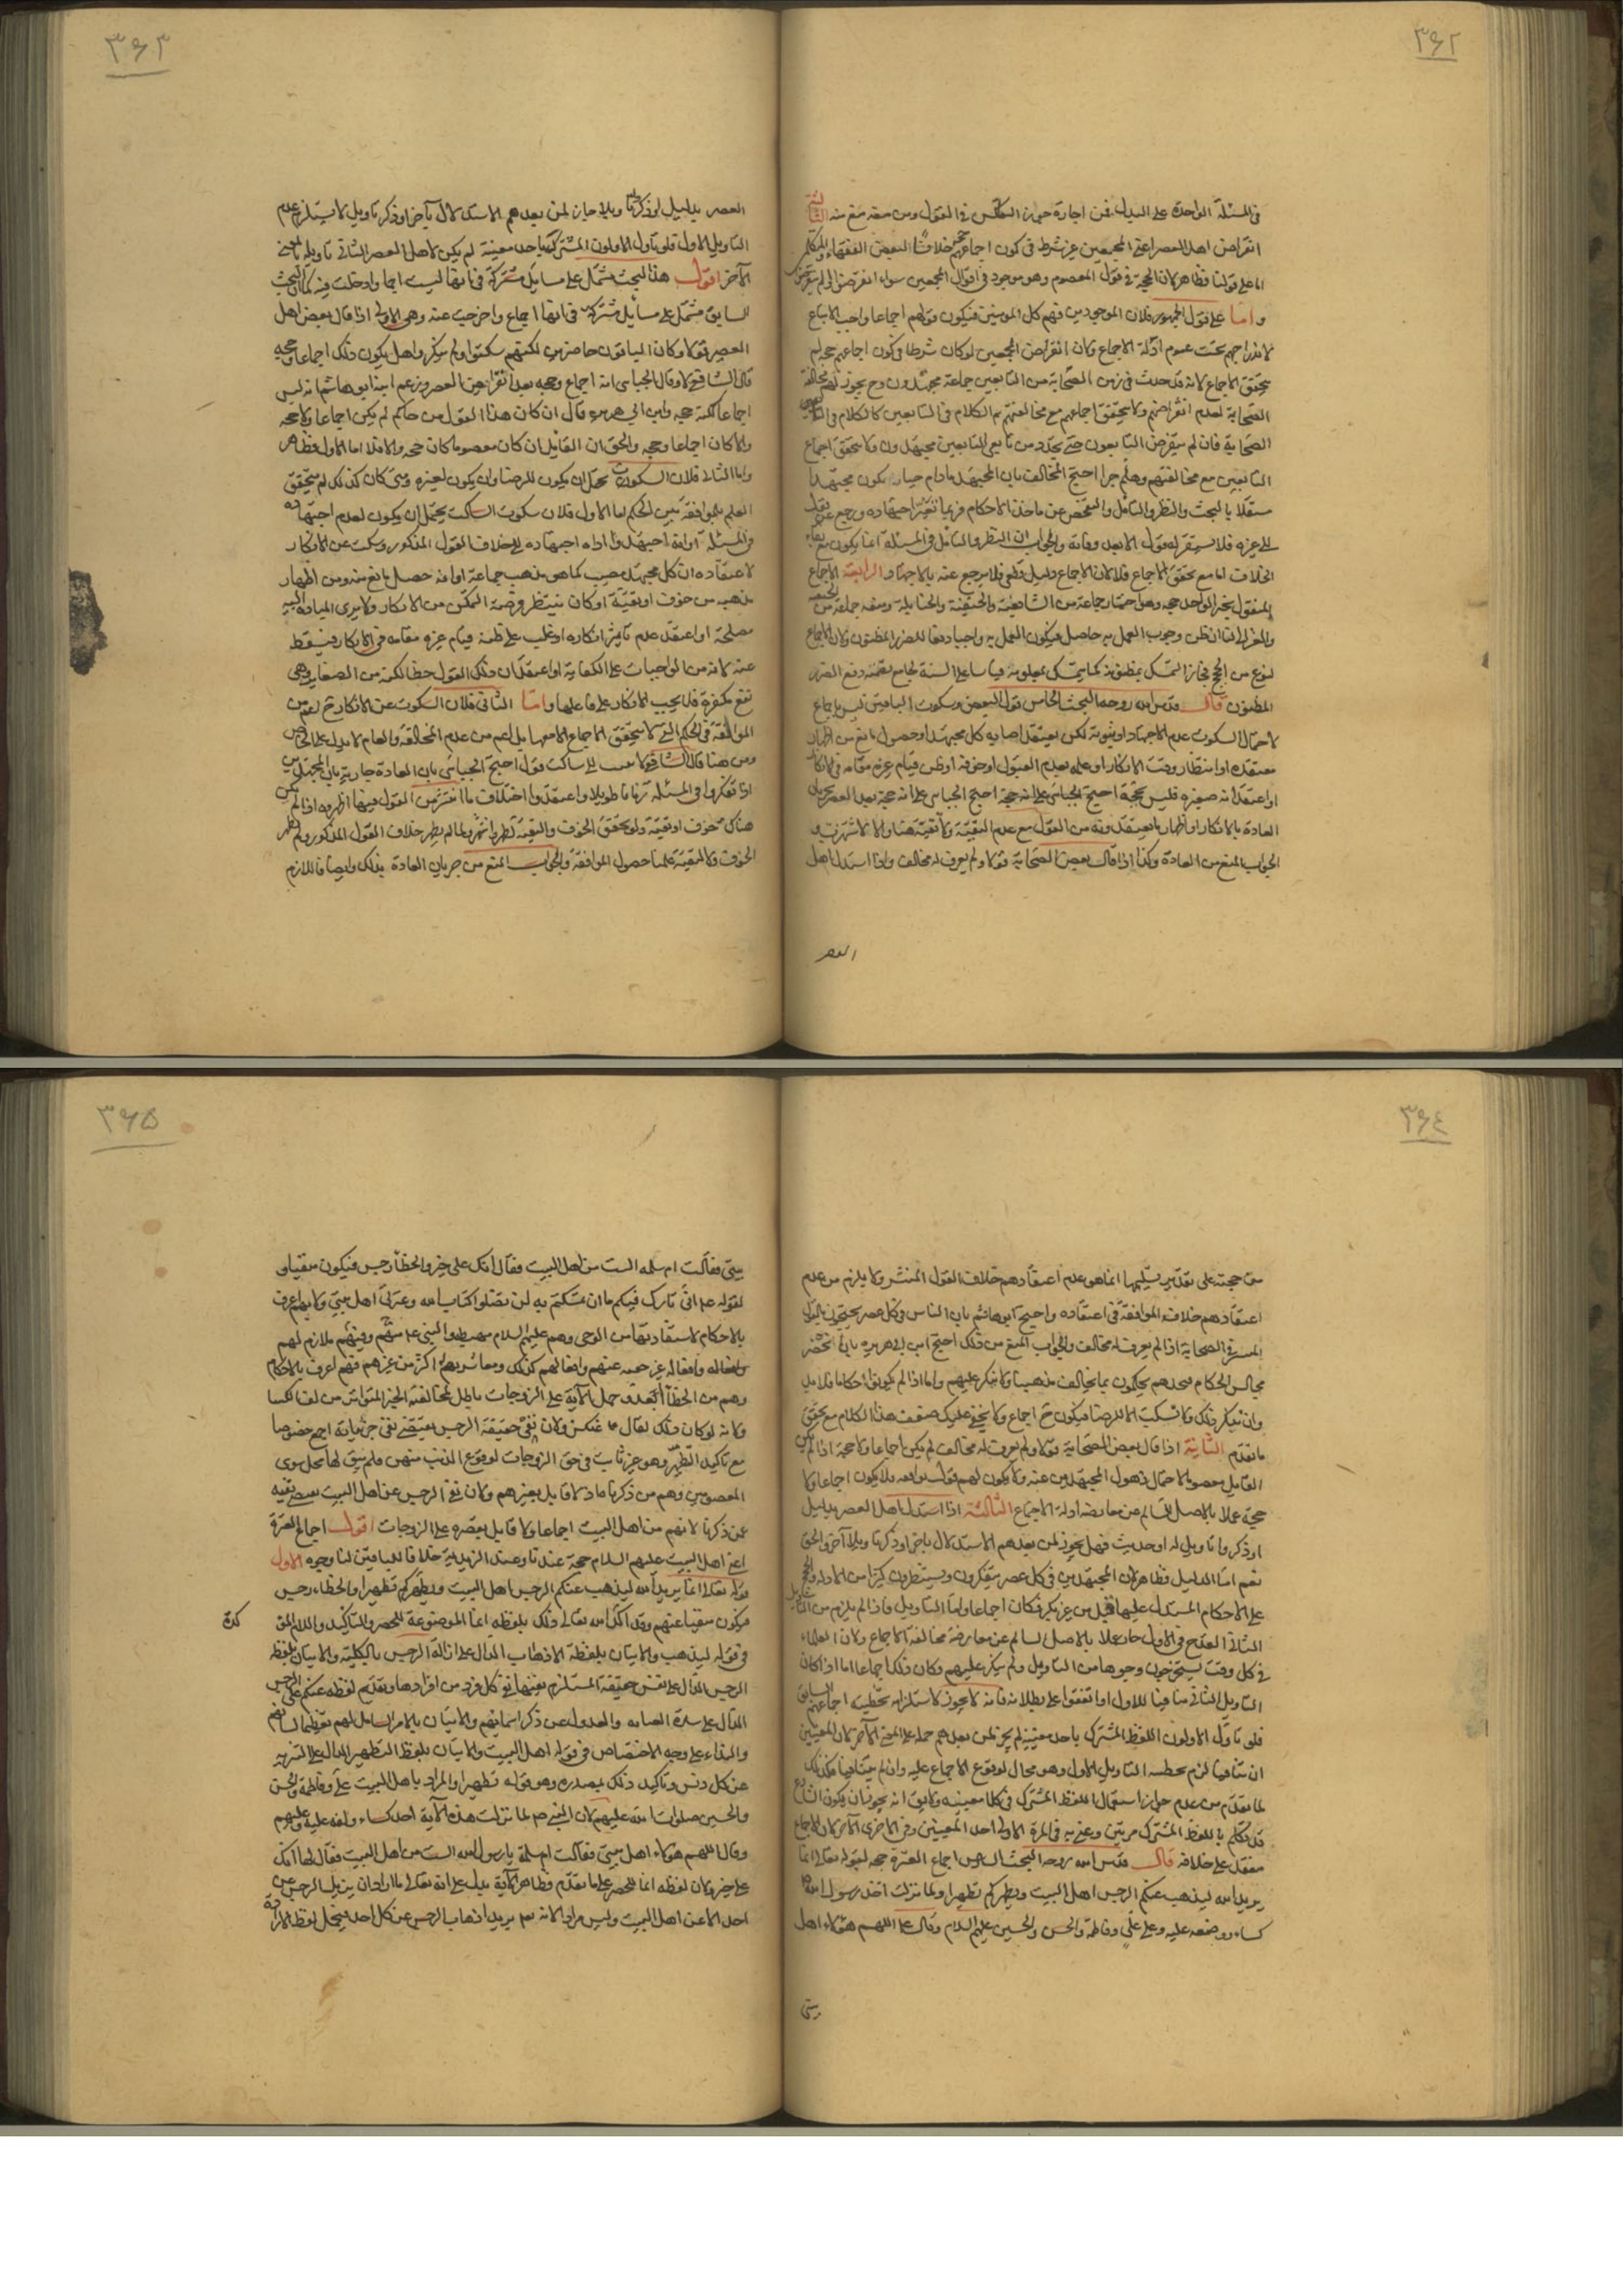 ٣٦٢
في المسئلة الواحدة على البدل فمن اجازه جوز العكس في القول ومن منعه منع منه الثالثة
انقراض اهل العصر اعني المجمعين غير شرط في كون اجماعهم حجة خلافا لبعض الفقهاء والمتكلمين
اما على قولنا فظاهر لان الحجة في قول المعصوم وهو موجود في اقوال المجمعين سواء انقرضوا او لم ينقرضوا
واما على قول الجمهور فلان الموجودين فهم كل المومنين فيكون قولهم اجماعا واجب الاتباع
لاندراجهم تحت عموم ادلة الاجماع ولان انقراض المجمعين لو كان شرطا في كون اجماعهم حجة لم
يتحقق الاجماع لانه قد حدث في زمن الصحابة من التابعين جماعة مجتهدون وح يجوز لهم مخالفة
الصحابة لعدم انقراضهم ولا يتحقق اجماعهم مع مخالفتهم ثم الكلام في التابعين كالكلام في
الصحابة فان لم ينقرض التابعون حتى تجدد من تابعي التابعين مجتهدون ولا يتحقق اجماع
التابعين مع مخالفتهم وهلم جرا احتج المخالف بان المجتهد ما دام حيا يكون مجتهدا
مستقلا بالبحث والنظر والتامل والتفحص عن ماخذ الاحكام فربما تغير اجتهاده ورجع عن قوله
الى غيره فلا يستقر له قول الا بعد وفاته والجواب ان النظر والتامل في المسئلة انما يكون مع بقاء
الخلاف اما مع تحقق الاجماع فلا لان الاجماع دليل قطعي فلا يرجع عنه بالاجتهاد الرابعة الاجماع
المنقول بخبر الواحد حجة وهو اختيار جماعة من الشافعية والحنفية والحنابلة ومنعه جماعة من الحنفية
والغزالي لنا ان ظن وجوب العمل به حاصل فيكون العمل به واجبا دفعا للضرر المظنون ولان الاجماع
نوع من الحجج فجاز التمسك بمظنونه كما يتمسك بمعلومه قياسا على السنة بجامع تضمنه دفع الضرر
المظنون قال قدس الله روحه البحث الخامس قول البعض وسكوت الباقين ليس باجماع
لاحتمال السكوت عدم الاجتهاد او ثبوته لكن يعتقد اصابة كل مجتهد او حصول مانع من اظهار
معتقده او انتظار وقت الانكار او علمه بعدم القبول او خوفه او ظن قيام غيره مقامه في الانكار
او اعتقد انه صغيره فليس بحجة احتج الجبائي على انه حجة بعد العصر بجريان
العادة بالانكار او اظهار ما يعتقدونه من القول مع عدم التقية ولا تقية هنا والا لاشتهرت و
الجواب المنع من العادة وكذا اذا قال بعض الصحابة قولا ولم يعرف له مخالف واذا استدل اهل
العصر
٣٦٣
العصر بدليل او ذكروا تاويلا جاز لمن بعدهم الاستدلال بآخر او ذكر تاويل لا يستلزم عدم
التاويل الاول فلو تاول الاولون المشترك باحد معنييه لم يكن لاهل العصر الثاني تاويله بالمعنى
الآخر اقول هذا البحث يشتمل على مسايل مشتركة في انها ليست اجماعا وادخلت فيه كما ان البحث
السابق مشتمل على مسايل مشتركة في انها اجماع واخرجت عنه وهي الاولى اذا قال بعض اهل
العصر قولا وكان الباقون حاضرين لكنهم سكتوا ولم ينكروا هل يكون ذلك اجماعا وحجة
قال الشافعي لا وقال الجبائي انه اجماع وحجة بعد انقراض العصر وزعم ابنه ابو هاشم انه ليس
اجماعا لكنه حجة وابن ابي هريرة قال ان كان هذا القول من حاكم لم يكن اجماعا ولا حجة
والا كان اجماعا وحجة والحق ان القايل ان كان معصوما كان حجة والا فلا اما الاول فظاهر
واما الثاني فلان السكوت يحتمل ان يكون للرضا وان يكون لغيره ومتى كان كذلك لم يتحقق
العلم بالموافقة في الحكم اما الاول فلان سكوت الساكت يحتمل ان يكون لعدم اجتهاده
في المسئلة او انه اجتهد واداه اجتهاده الى خلاف القول المذكور وسكت عن الانكار
لاعتقاده ان كل مجتهد مصيب كما هو مذهب جماعة او انه حصل مانع منه ومن اظهار
مذهبه من خوف او تقية او كان ينتظر فرصة التمكن من الانكار ولا يرى المبادرة اليه
مصلحة او اعتقد عدم تاثير انكاره او غلب على ظنه قيام غيره مقامه في الانكار فيسقط
عنه لانه من الواجبات على الكفاية او اعتقد ان ذلك القول خطا لكنه من الصغاير وهي
تقع مكفرة فلا يجب الانكار على فاعلها واما الثاني فلان السكوت عن الانكار ح اعم من
الموافقة في الحكم التي لا يتحقق الاجماع الا معها بل اعم من عدم المخالفة والعام لا يدل على الخاص
ومن هنا قال الشافعي لا ينسب الى ساكت قول احتج الجبائي بان العادة جارية بان المجتهدين
اذا تفكروا في المسئلة زمانا طويلا واعتقدوا اختلاف ما انتشر من القول فيها اظهروه اذا لم يكن
هناك خوف او تقية ولو تحقق الخوف والتقية لظهر واشتهر ولما لم يظهر خلاف القول المذكور ولم يظهر
الخوف ولا التقية علمنا حصول الموافقة والجواب المنع من جريان العادة بذلك وايضا فاللازم
٣٦٤
من حجته على تقدير تسليمها انما هو عدم اعتقادهم خلاف القول المنتشر ولا يلزم من عدم
اعتقادهم خلافه الموافقة في اعتقاده واحتج ابو هاشم بان الناس في كل عصر يحتجون بالقول
المنتشر في الصحابة اذا لم يعرف له مخالف والجواب المنع من ذلك احتج ابن ابي هريرة بانا نحضر
مجالس الحكام ونجدهم يحكمون بما يخالف مذهبنا ولا ننكر عليهم واما اذا لم يكونوا حكاما فلا بد
وان ننكر ذلك ولا نسكت الا للرضا فيكون ح اجماع ولا يخفى عليك ضعف هذا الكلام مع تحقق
ما تقدم الثانية اذا قال بعض الصحابة قولا ولم يعرف له مخالف لم يكن اجماعا ولا حجة اذا لم يكن
القايل معصوما لاحتمال ذهول المجتهدين عنه ولا يكون لهم قول يوافقه فلا يكون اجماعا ولا
حجة عملا بالاصل السالم عن معارضة ادلة الاجماع الثالثة اذا استدل اهل العصر بدليل
او ذكروا تاويلا لآية او حديث فهل يجوز لمن بعدهم الاستدلال بآخر او ذكر تاويل آخر والحق
نعم اما الدليل فظاهر لان المجتهدين في كل عصر يتفكرون ويستنبطون كثيرا من الادلة والحجج
على الاحكام المستدل عليها قبل من غير نكير فكان اجماعا واما التاويل فاذا لم يلزم من التاويل
الثاني القدح في الاول جاز عملا بالاصل السالم عن معارضة مخالفة الاجماع ولان العلماء
في كل وقت يستخرجون وجوها من التاويل ولم ينكر عليهم وكان ذلك اجماعا اما اذا كان
التاويل الثاني منافيا للاول او اتفقوا على بطلانه فانه لا يجوز لاستلزامه تخطية اجماعهم السابق
فلو تاول الاولون اللفظ المشترك باحد معنييه لم يجز لمن بعدهم حمله على المعنى الآخر لان المعنيين
ان تنافيا لزم تخطئة التاويل الاول وهو محال لوقوع الاجماع عليه وان لم يتنافيا فكذلك
لما تقدم من عدم جواز استعمال اللفظ المشترك في كلا معنييه ولا يق انه يجوز ان يكون الشارع
قد تكلم باللفظ المشترك مرتين وعنى به في المرة الاولى احد المعنيين وفي الاخرى الآخر لان الاجماع
منعقد على خلافه قال قدس الله روحه البحث السادس اجماع العترة حجة لقوله تعالى انما
يريد الله ليذهب عنكم الرجس اهل البيت ويطهركم تطهيرا ولما نزلت اخذ رسول الله ص
كساء ووضعه عليه وعلى علي وفاطمة والحسن والحسين عليهم السلام وقال اللهم هؤلاء اهل
بيتي
٣٦٥
بيتي فقالت ام سلمه الست من اهل البيت فقال انك على خير والخطأ رجس فيكون منفيا و
لقوله ع اني تارك فيكم ما ان تمسكتم به لن تضلوا كتاب الله وعترتي اهل بيتي ولانهم اعرف
بالاحكام لاستفادتها من الوحي وهم عليهم السلام مهبطه والنبي ع منهم وفيهم ملازم لهم
وافعاله واقواله غير خفيه عنهم وافعالهم كذلك ومعاشرتهم اكثر من غيرهم فهم اعرف بالاحكام
وهم من الخطأ ابعد وحمل الآية على الزوجات باطل لمخالفة الخبر المتواتر من لف الكسا
ولانه لو كان ذلك لقال عنكن ولان نفي حقيقة الرجس يقتضي نفي جزئياته اجمع خصوصا
مع تاكيد التطهير وهو غير ثابت في حق الزوجات لوقوع الذنب منهن فلم يبق لها محل سوى
المعصومين وهم من ذكرنا اذ لا قايل بغيرهم ولان نفي الرجس عن اهل البيت يقتضي نفيه
عمن ذكرنا لانهم من اهل البيت اجماعا ولا قايل بقصره على الزوجات اقول اجماع العترة
اعني اهل البيت عليهم السلام حجة عندنا وعند الزيدية خلافا للباقين لنا وجوه الاول
قوله تعالى انما يريد الله ليذهب عنكم الرجس اهل البيت ويطهركم تطهيرا والخطاء رجس
فيكون منفيا عنهم وقد اكد الله تعالى ذلك بلفظه انما الموضوعة للحصر والتاكيد واللام
في قوله ليذهب والاتيان بلفظة الاذهاب الدال على ازالة الرجس بالكلية والاتيان بلفظ
الرجس الدال على نفس حقيقة المستلزم نفيها نفي كل فرد من افرادها وتقديم لفظه عنكم على الرجس
الدال على شدة العناية والعدول عن ذكر اسمائهم والاتيان بالاسم الشامل لهم تعظيما لشانهم
والنداء على وجه الاختصاص في قوله اهل البيت والاتيان بلفظ التطهير الدال على التنزيه
عن كل دنس وتاكيد ذلك بمصدره وهو قوله تطهيرا والمراد باهل البيت علي وفاطمة والحسن
والحسين صلوات الله عليهم لان النبي ص لما نزلت هذه الآية اخذ كساء ولفه عليه وعليهم
وقال اللهم هؤلاء اهل بيتي فقالت ام سلمة يا رسول الله الست من اهل البيت فقال لها انك
على خير ولان لفظه انما للحصر على ما تقدم فظاهر الآية يدل على انه تعالى ما اراد ان يزيل الرجس عن
احد الا عن اهل البيت وليس مرادا لانه تعالى يريد اذهاب الرجس عن كل احد فيحمل لفظ الارادة